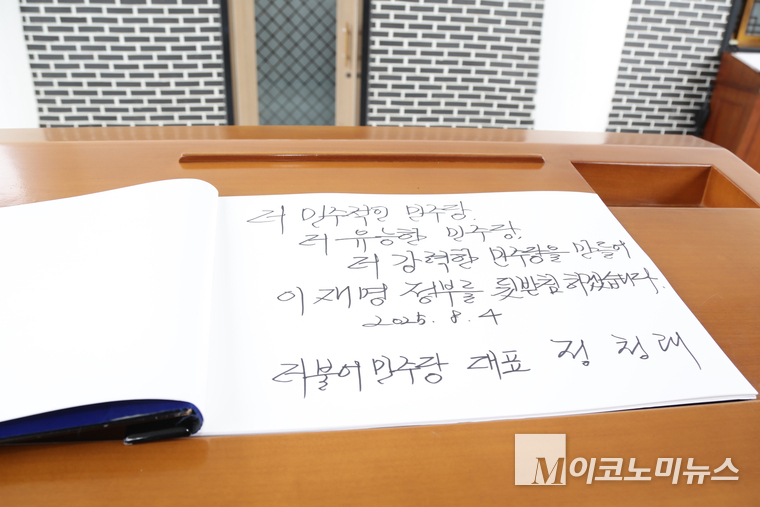 더 민주적인 민주당.
더 유능한 민주당.
더 강력한 민주당을 만들어
이재명 정부를 뒷받침 하겠습니다.
2025. 8. 4
더불어민주당 대표 정청래
M이코노미뉴스